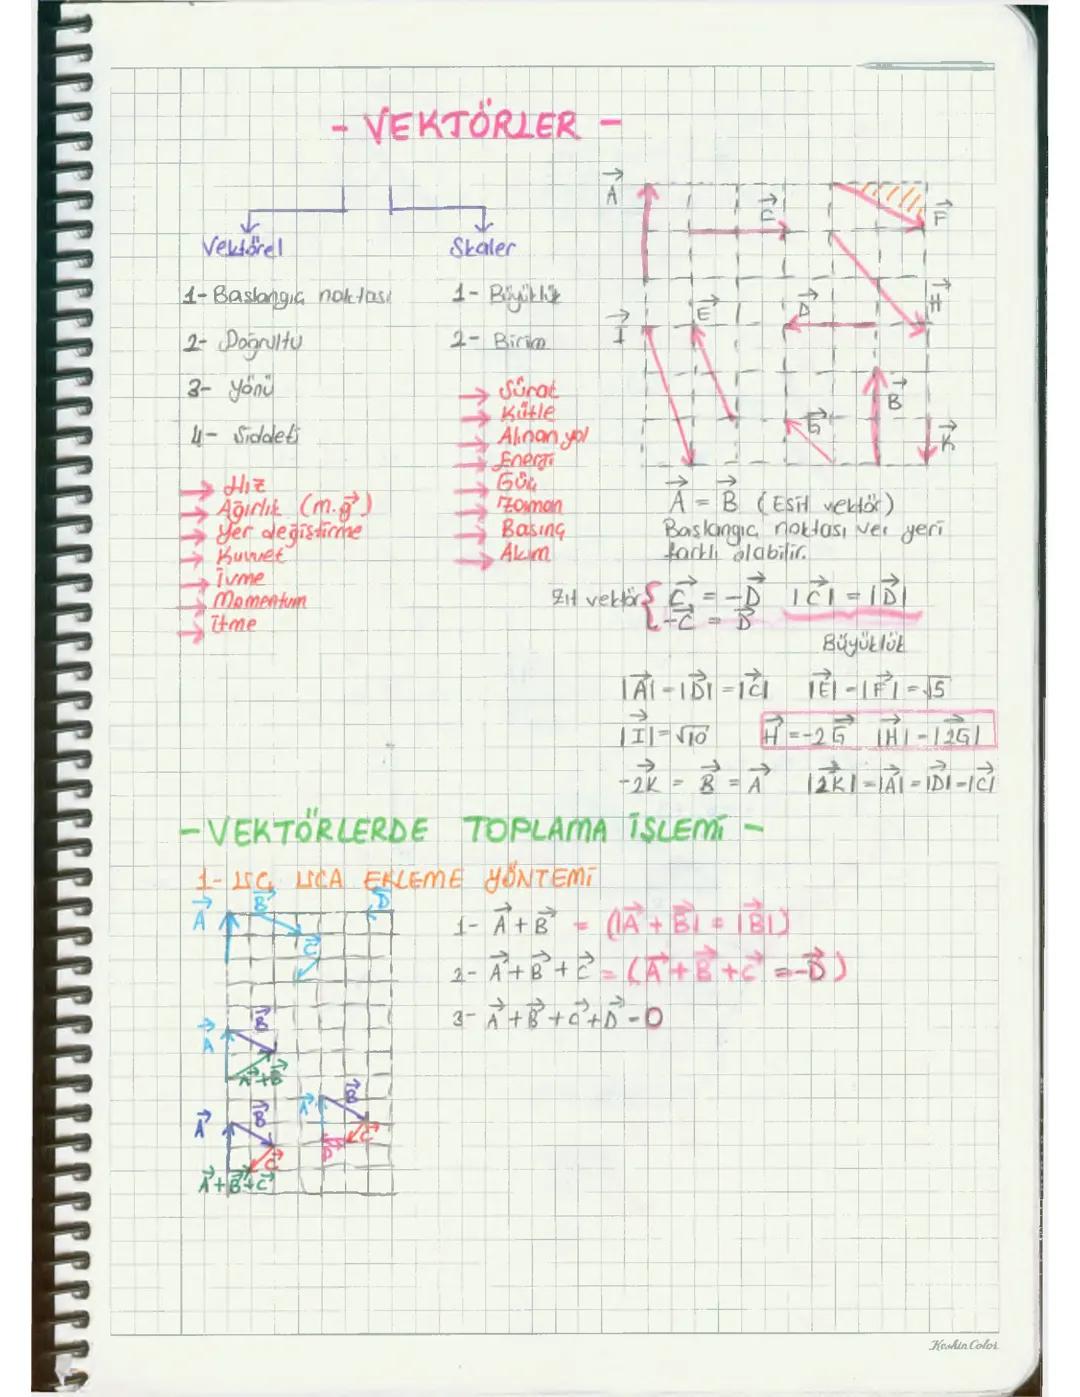 - VEKTÖRLER -
Vektörel
1- Baslangıç noktası
2- Doğrultu
3- Yönü
4- Siddeti
→ Hız
→ Ağırlık (m.g⃗)
→ Yer değiştirme
→ Kuvvet
→ İvme
→ Momentum
→ İtme
Skaler
1- Büyüklük
2- Birim
→ Sürat
→ Kütle
→ Alınan yol
→ Energi
→ Güç
→ Zaman
→ Basınç
→ Akım
A⃗
C⃗
F⃗
I⃗
E⃗
D⃗
H⃗
G⃗
B⃗
K⃗
A⃗ = B⃗ (Esit vektör)
Baslangıç noktası ver yeri
farklı olabilir.
Zıt vektör { C⃗ = -D⃗ |C⃗| = |D⃗|
-C⃗ = D⃗
Büyüklük
|A⃗| = |D⃗| = |C⃗| |E⃗| = |F⃗| = √5
|I⃗| = √10 H⃗ = -2G⃗ |H⃗| = |2G⃗|
-2K⃗ = B⃗ = A⃗ |2K⃗| = |A⃗| = |D⃗| = |C⃗|
- VEKTÖRLERDE TOPLAMA İŞLEMİ -
1- UÇ UCA EKLEME YÖNTEMİ
A⃗ B⃗ D⃗
C⃗
A⃗ B⃗
A⃗+B⃗
A⃗ B⃗ C⃗
A⃗+B⃗+C⃗
A⃗ B⃗ C⃗ D⃗
1- A⃗+B⃗ = (|A⃗ + B⃗| = |B⃗|)
2- A⃗+B⃗+C⃗ = (A⃗+B⃗+C⃗ = -D⃗)
3- A⃗+B⃗+C⃗+D⃗ = 0
Keskin Color